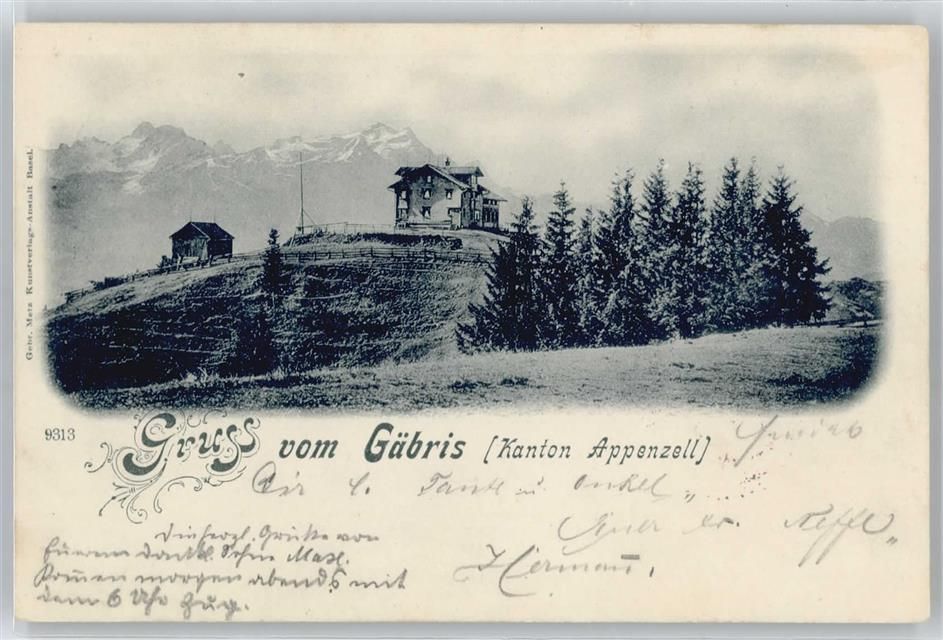 Gebr. Metz Kunstverlags-Anstalt Basel.
9313
Gruss vom Gäbris (Kanton Appenzell)
sendet
Dir l. Tante u. Onkel
Euer Neffe
Herman̄.
Die herzl. Grüße von
Eurem dankb. Sohn Max.
Kom̄en morgen abends mit
dem 6 Uhr Zug.